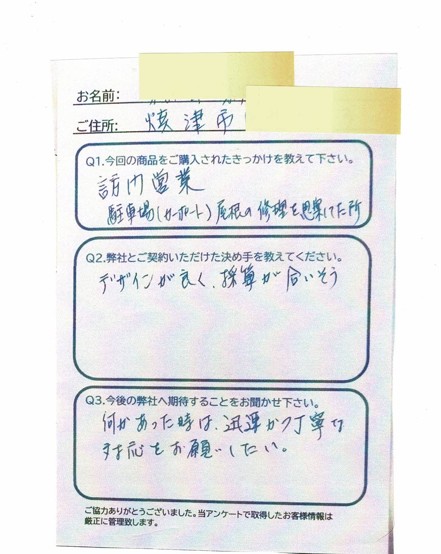 お名前:
ご住所: 焼津市
Q1.今回の商品をご購入されたきっかけを教えて下さい。
訪門営業
駐車場(カーポート)屋根の修理を思案してた所
Q2.弊社とご契約いただけた決め手を教えてください。
デザインが良く、採算が合いそう
Q3.今後の弊社へ期待することをお聞かせ下さい。
何かあった時は、迅速かつ丁寧な
対応をお願いしたい。
ご協力ありがとうございました。当アンケートで取得したお客様情報は
厳正に管理致します。